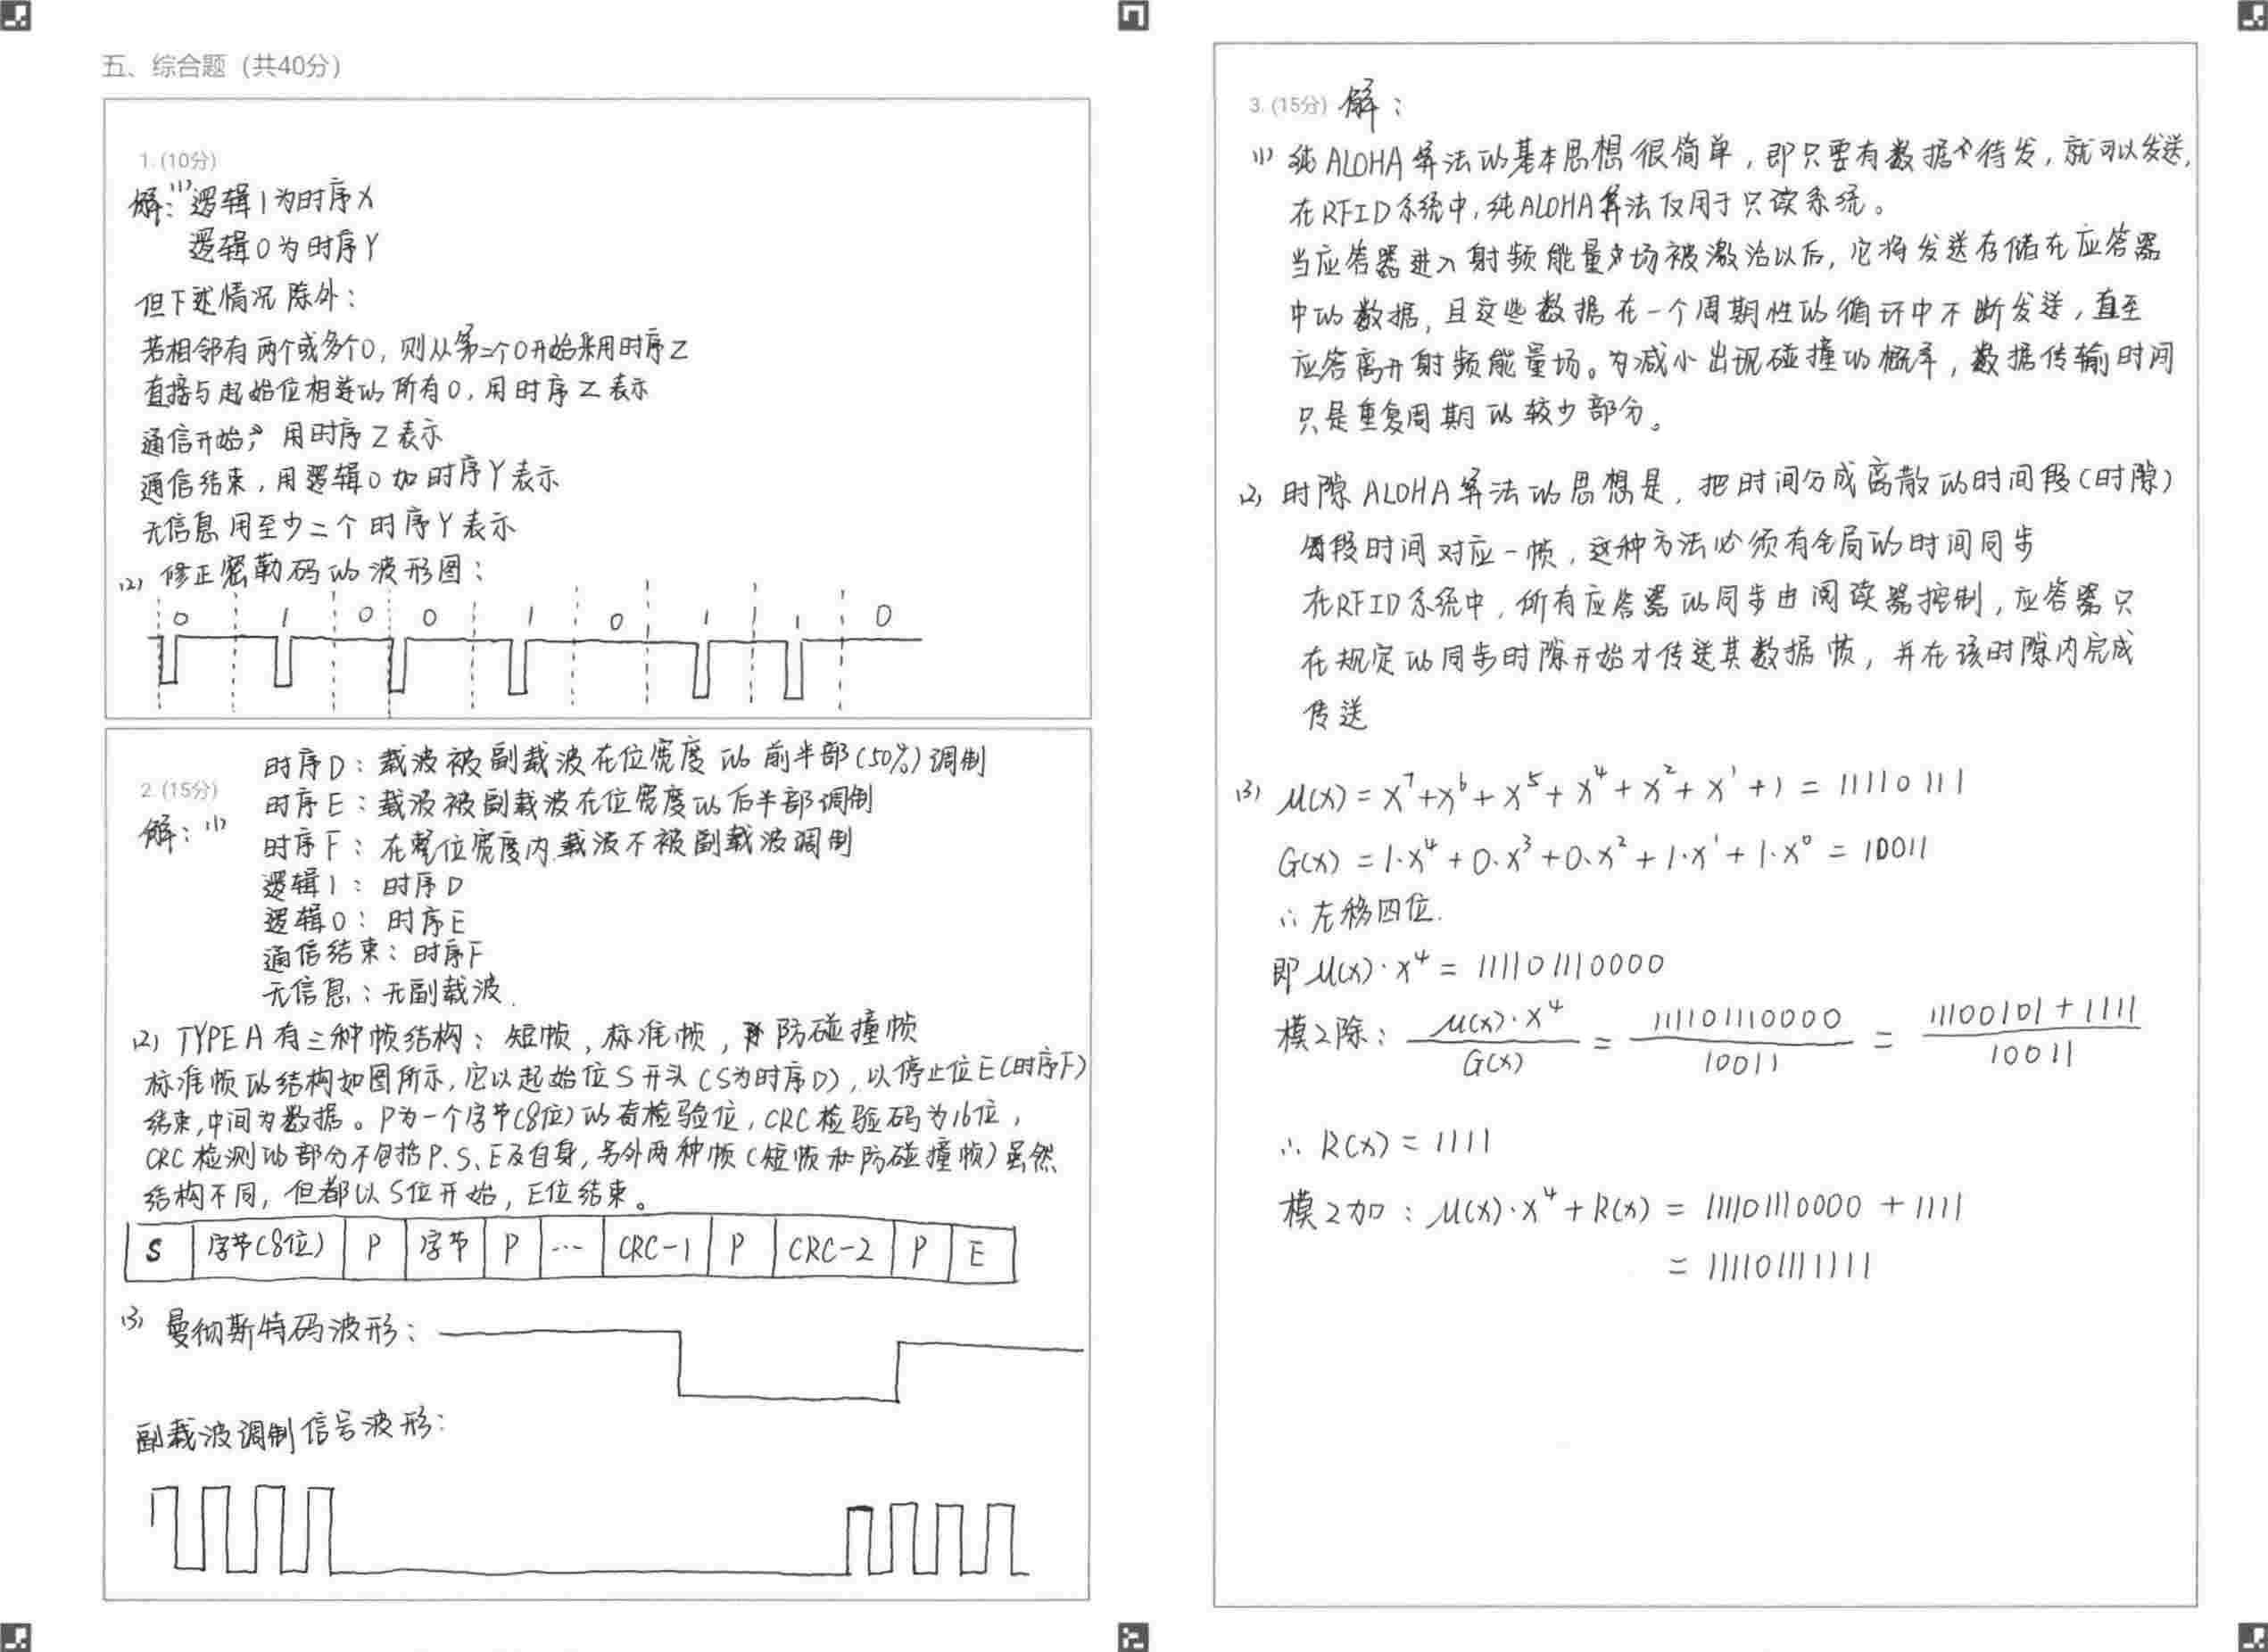 五、综合题（共40分）
1. (10分)
解：(1) 逻辑1为时序X
逻辑0为时序Y
但下述情况除外：
若相邻有两个或多个0，则从第二个0开始采用时序Z
直接与起始位相连的所有0，用时序Z表示
通信开始，用时序Z表示
通信结束，用逻辑0加时序Y表示
无信息用至少二个时序Y表示
(2) 修正密勒码的波形图：
0 1 0 0 1 0 1 1 1 0
2. (15分)
解：(1)
时序D：载波被副载波在位宽度的前半部(50%)调制
时序E：载波被副载波在位宽度的后半部调制
时序F：在整位宽度内载波不被副载波调制
逻辑1：时序D
逻辑0：时序E
通信结束：时序F
无信息：无副载波.
(2) TYPE A有三种帧结构：短帧，标准帧，防碰撞帧
标准帧的结构如图所示，它以起始位S开头（S为时序D），以停止位E（时序F）
结束，中间为数据。P为一个字节（8位）的奇检验位，CRC检验码为16位，
CRC检测的部分不包括P、S、E及自身，另外两种帧（短帧和防碰撞帧）虽然
结构不同，但都以S位开始，E位结束。
S 字节(8位) P 字节 P … CRC-1 P CRC-2 P E
(3) 曼彻斯特码波形：
副载波调制信号波形：
3. (15分) 解：
(1) 纯ALOHA算法的基本思想很简单，即只要有数据待发，就可以发送，
在RFID系统中，纯ALOHA算法仅用于只读系统。
当应答器进入射频能量场被激活以后，它将发送存储在应答器
中的数据，且这些数据在一个周期性的循环中不断发送，直至
应答离开射频能量场。为减小出现碰撞的概率，数据传输时间
只是重复周期的较少部分。
(2) 时隙ALOHA算法的思想是，把时间分成离散的时间段（时隙）
每段时间对应一帧，这种方法必须有全局的时间同步
在RFID系统中，所有应答器的同步由阅读器控制，应答器只
在规定的同步时隙开始才传送其数据帧，并在该时隙内完成
传送
(3) M(x) = x⁷+x⁶+x⁵+x⁴+x²+x¹+1 = 11110111
G(x) = 1·x⁴+0·x³+0·x²+1·x¹+1·x⁰ = 10011
∴ 左移四位.
即 M(x)·x⁴ = 111101110000
模2除： M(x)·x⁴ / G(x) = 111101110000 / 10011 = 11100101 + 1111 / 10011
∴ R(x) = 1111
模2加：M(x)·x⁴+R(x) = 111101110000 + 1111
= 111101111111